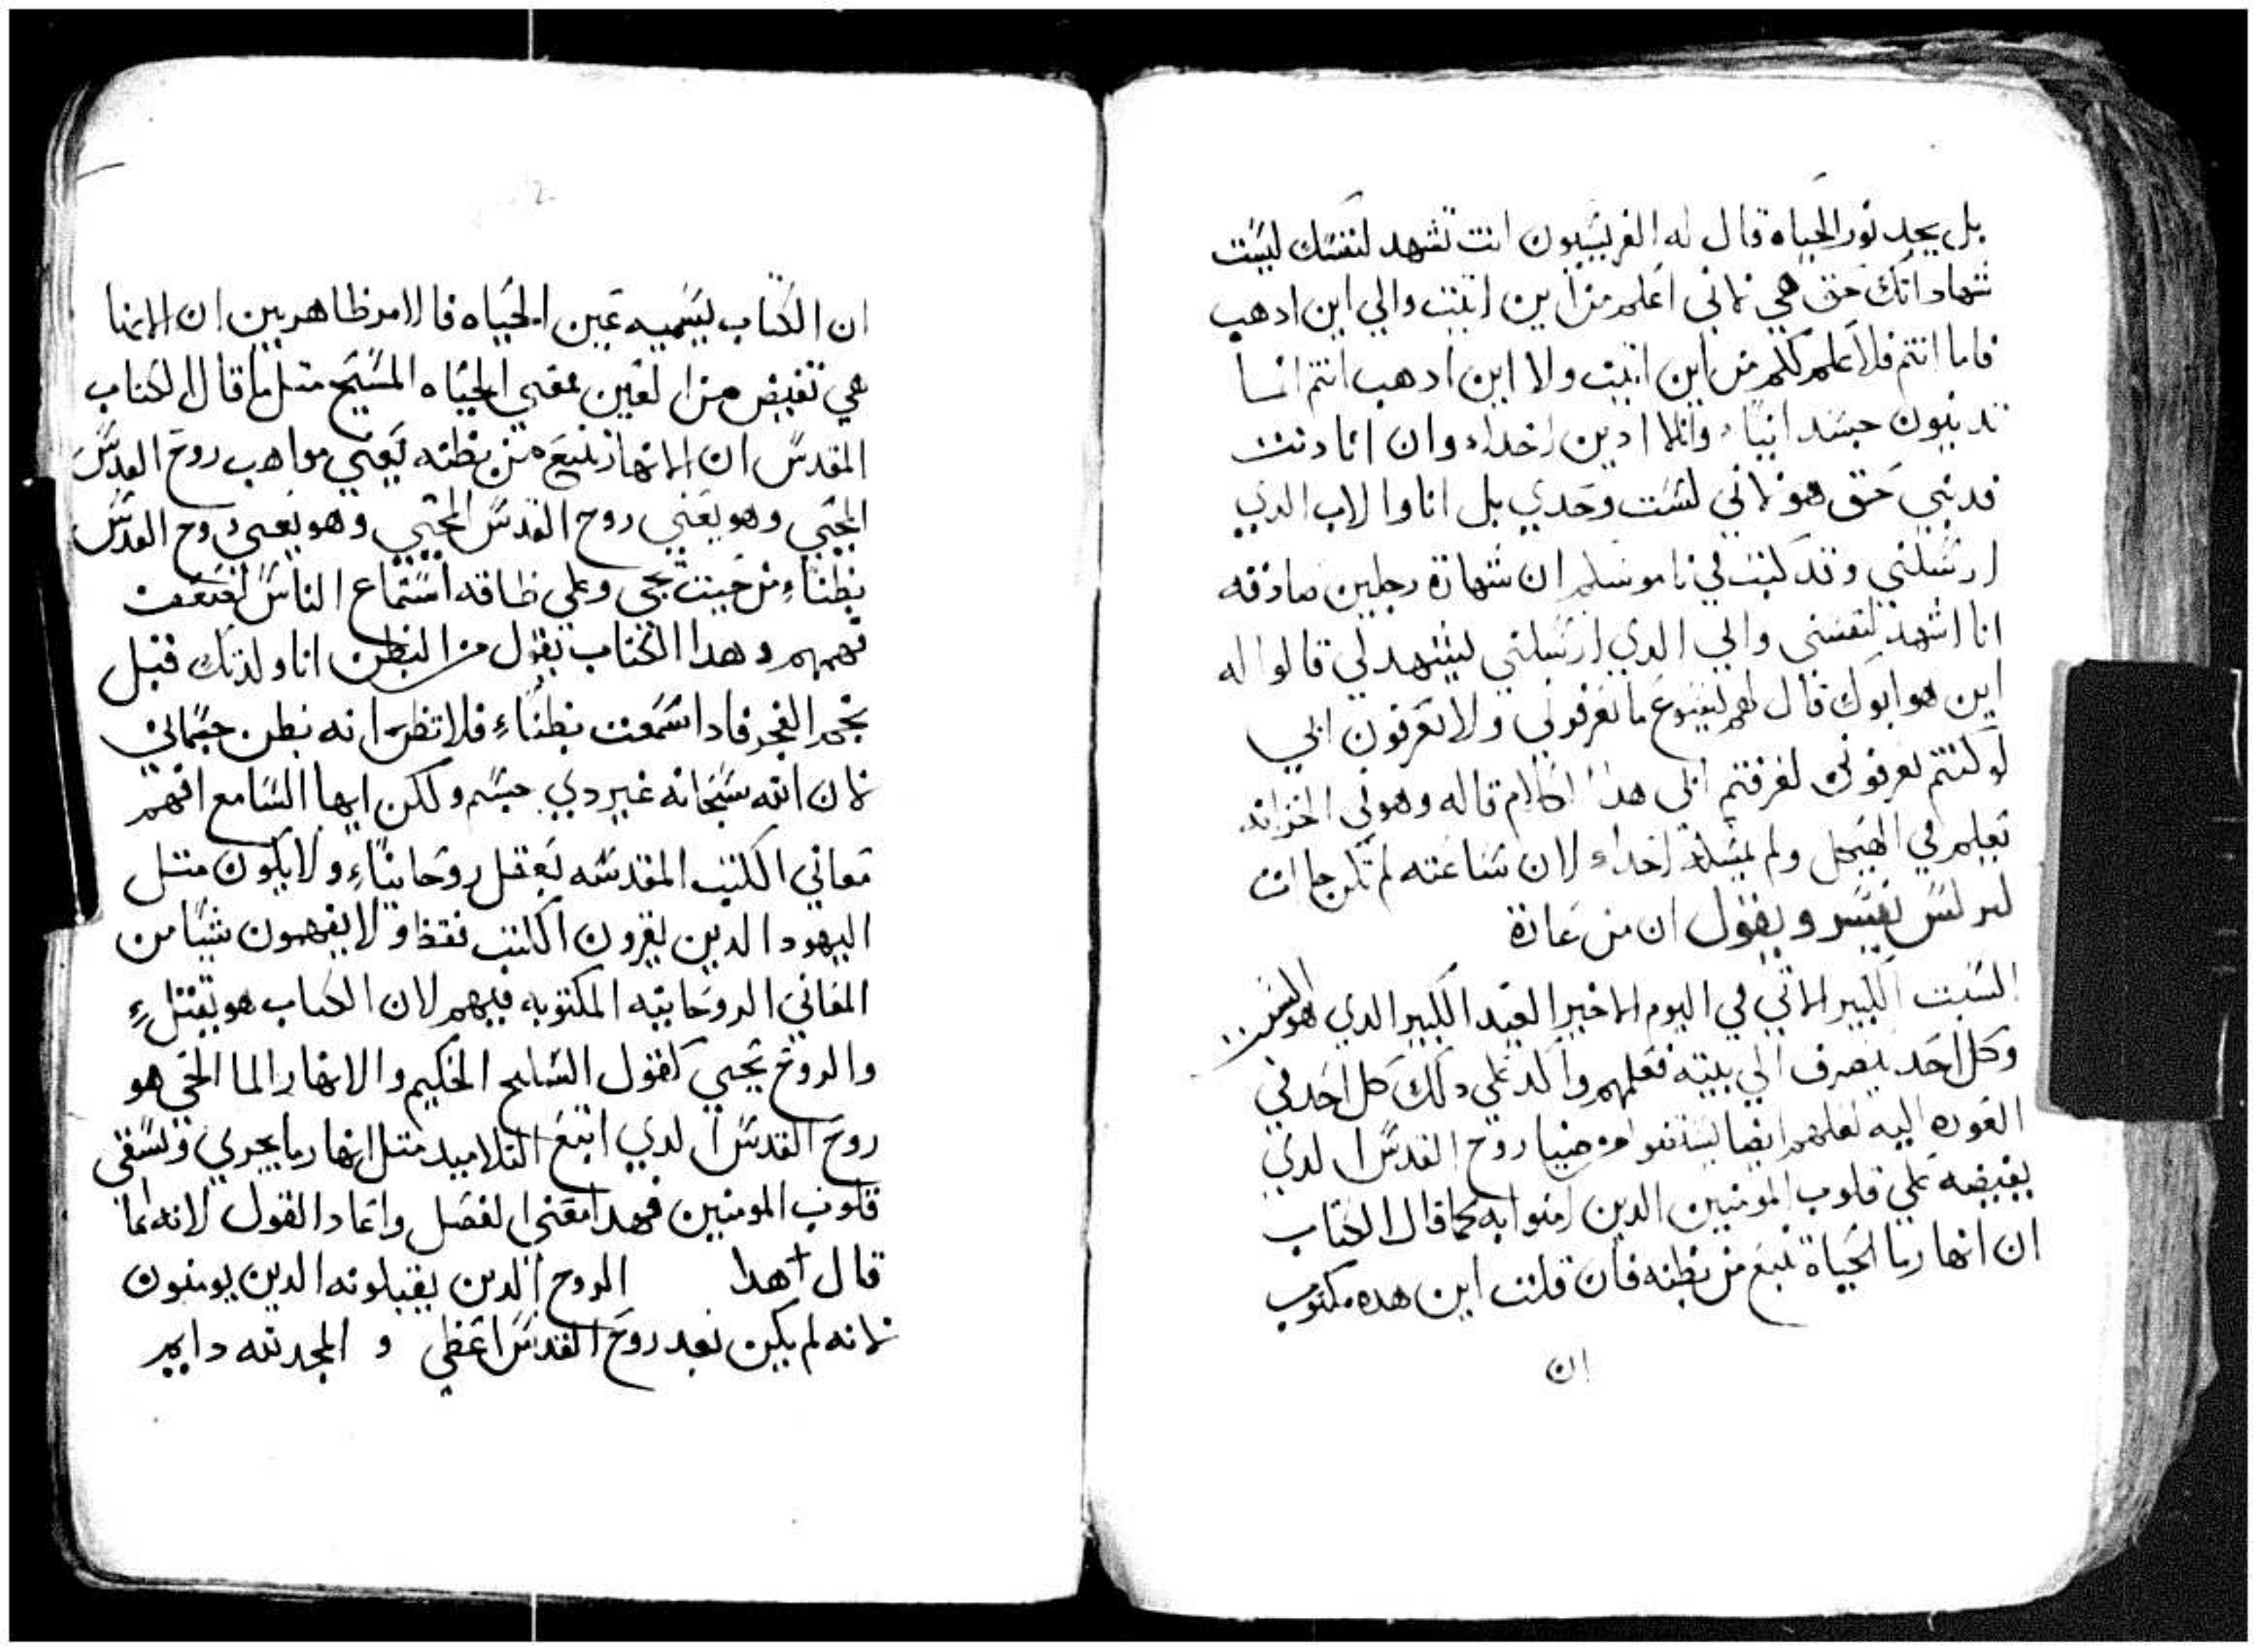 بل يجد نور الحياه قال له الفريسيون انت تشهد لنفسك ليست
شهاداتك حق هي لاني اعلم من اين اتيت والي اين ادهب
فاما انتم فلا علم لكم من اين اتيت ولا اين ادهب انتم انما
تدينون جسدانياً وانا لا ادين احداً وان انا دنت
فديني حق هو لاني لست وحدي بل انا والاب الدي
ارسلني وقد كتب في ناموسكم ان شهادة رجلين صادقه
انا اشهد لنفسي وابي الدي ارسلني ليشهد لي قالوا له
اين هو ابوك قال لهم ليسوع ما تعرفوني ولا تعرفون ابي
لو كنتم تعرفوني لعرفتم ابي هدا الكلام قاله وهو في الخزانه
تعليم في الهيكل ولم يمسكه احداً لان ساعته لم تكن جاات
يفسر ويقول ان من عادة
السبت الكبير الاتي في اليوم الاخير العيد الكبير الدي هو
وكل احد ينصرف الي بيته فعلمهم واكد علي دلك كل احد في
العوده اليه لعلهم ايضا يستقوا من ضيا روح القدس الدي
يفيضه علي قلوب المومنين الدين امنوا به كما قال الكتاب
ان انهار ما الحياة تنبع من بطنه فان قلت اين هده مكتوب
ان
ان الكتاب يسميه عين الحياه فالامر ظاهر بين ان الانما
هي تفيض من العين عفني الحياه المسيح متل ما قال الكتاب
المقدس ان الانهار تنبع من بطنه يعني مواهب روح القدس
المحيي وهو يعني روح القدس المحيي وهو يعني روح القدس
بطناً من حيت يجي وعلي طاقه استماع الناس لضعفت
فهمهم وهدا الكتاب يقول من البطن انا ولدتك قبل
نجم الفجر فادا سمعت بطناً فلا تظن انه بطن جسماني
لان الله سبحانه غير دي جسم ولكن ايها السامع افهم
معاني الكتب المقدسه بعقل روحانياً ولا يكون متل
اليهود الدين يقرون الكتب فقط ولا يفهمون شيا من
المعاني الروحانيه المكتوبه فيهم لان الكتاب هو يقتل
والروح يحيي كقول السليح الحكيم والانهار الما الحي هو
روح القدس الدي انبع التلاميد متل انهار ما يجري وتسقي
قلوب المومنين فهدا معني الفصل واعاد القول لانه انما
قال هدا الروح الدين يقبلونه الدين يومنون
لانه لم يكن بعد روح القدس اعطي و المجد لله دايم